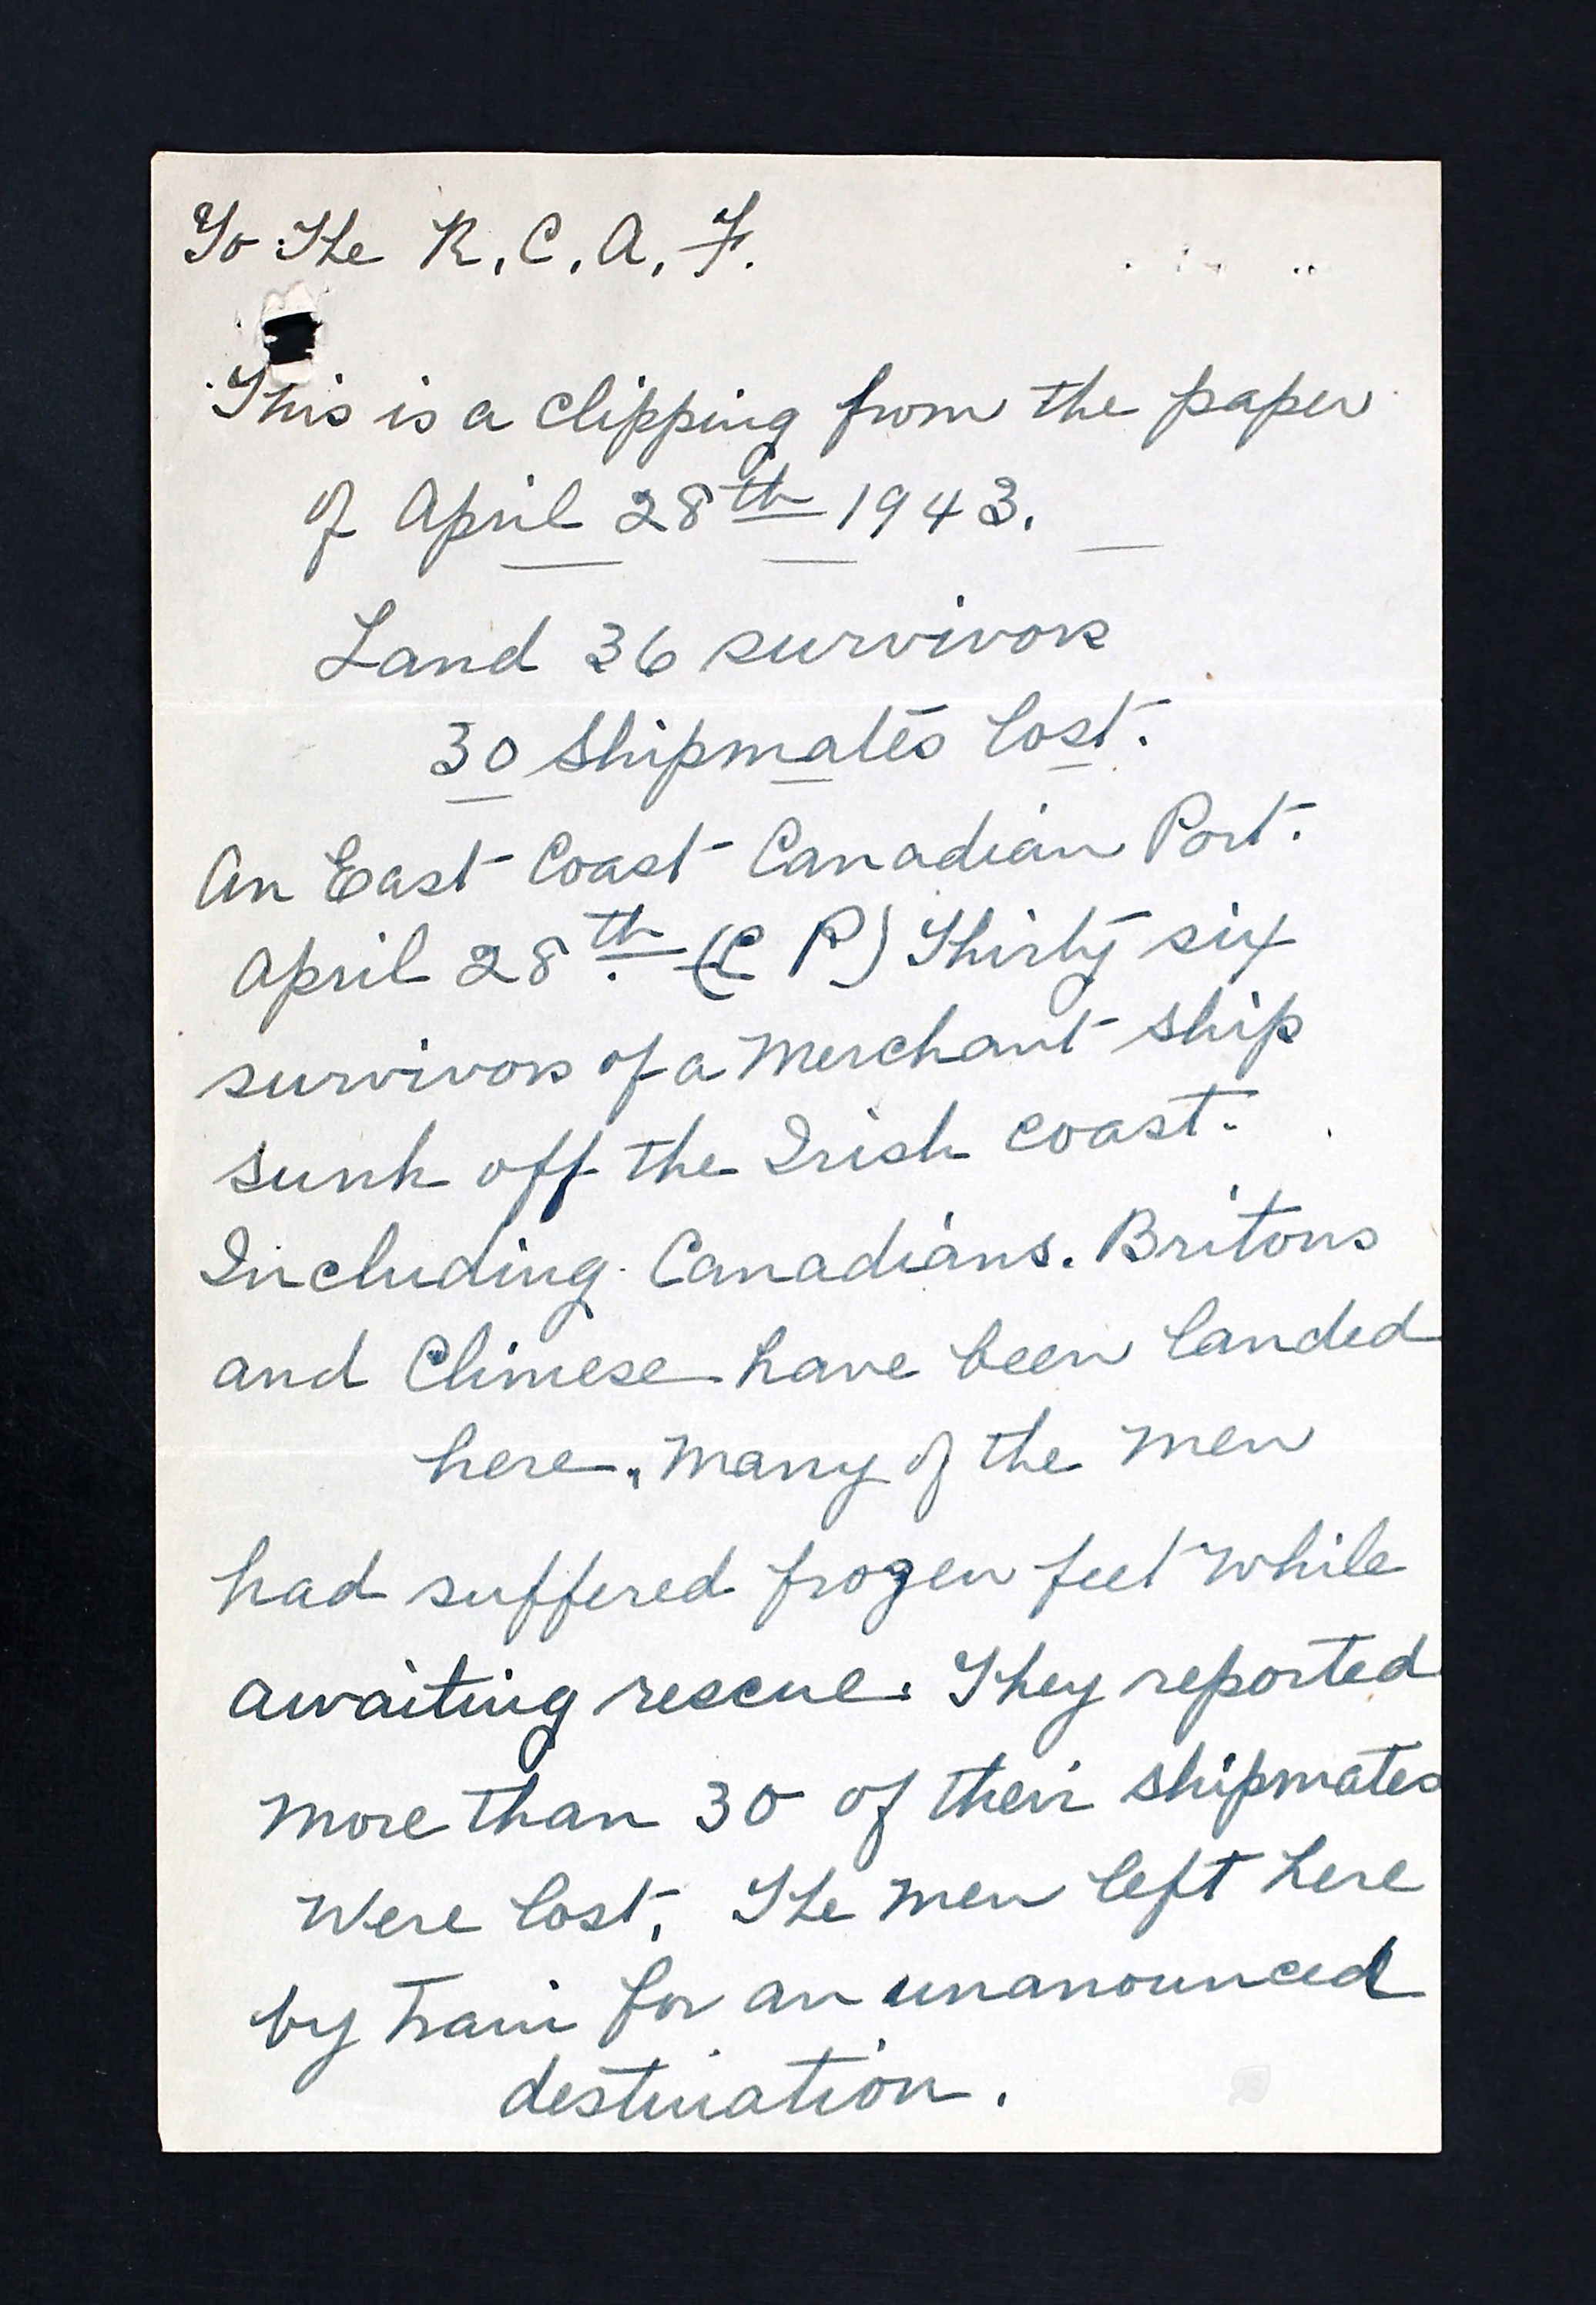 To The R, C, A, F.
This is a clipping from the paper
of April 28th 1943.
Land 36 survivors
30 Shipmates lost.
An East Coast Canadian Port.
April 28th (C P) Thirty six
survivors of a Merchant ship
sunk off the Irish coast.
Including Canadians. Britons
and Chinese have been landed
here. Many of the men
had suffered frozen feet while
awaiting rescue. They reported
more than 30 of their shipmates
were lost. The men left here
by train for an unanounced
destination.